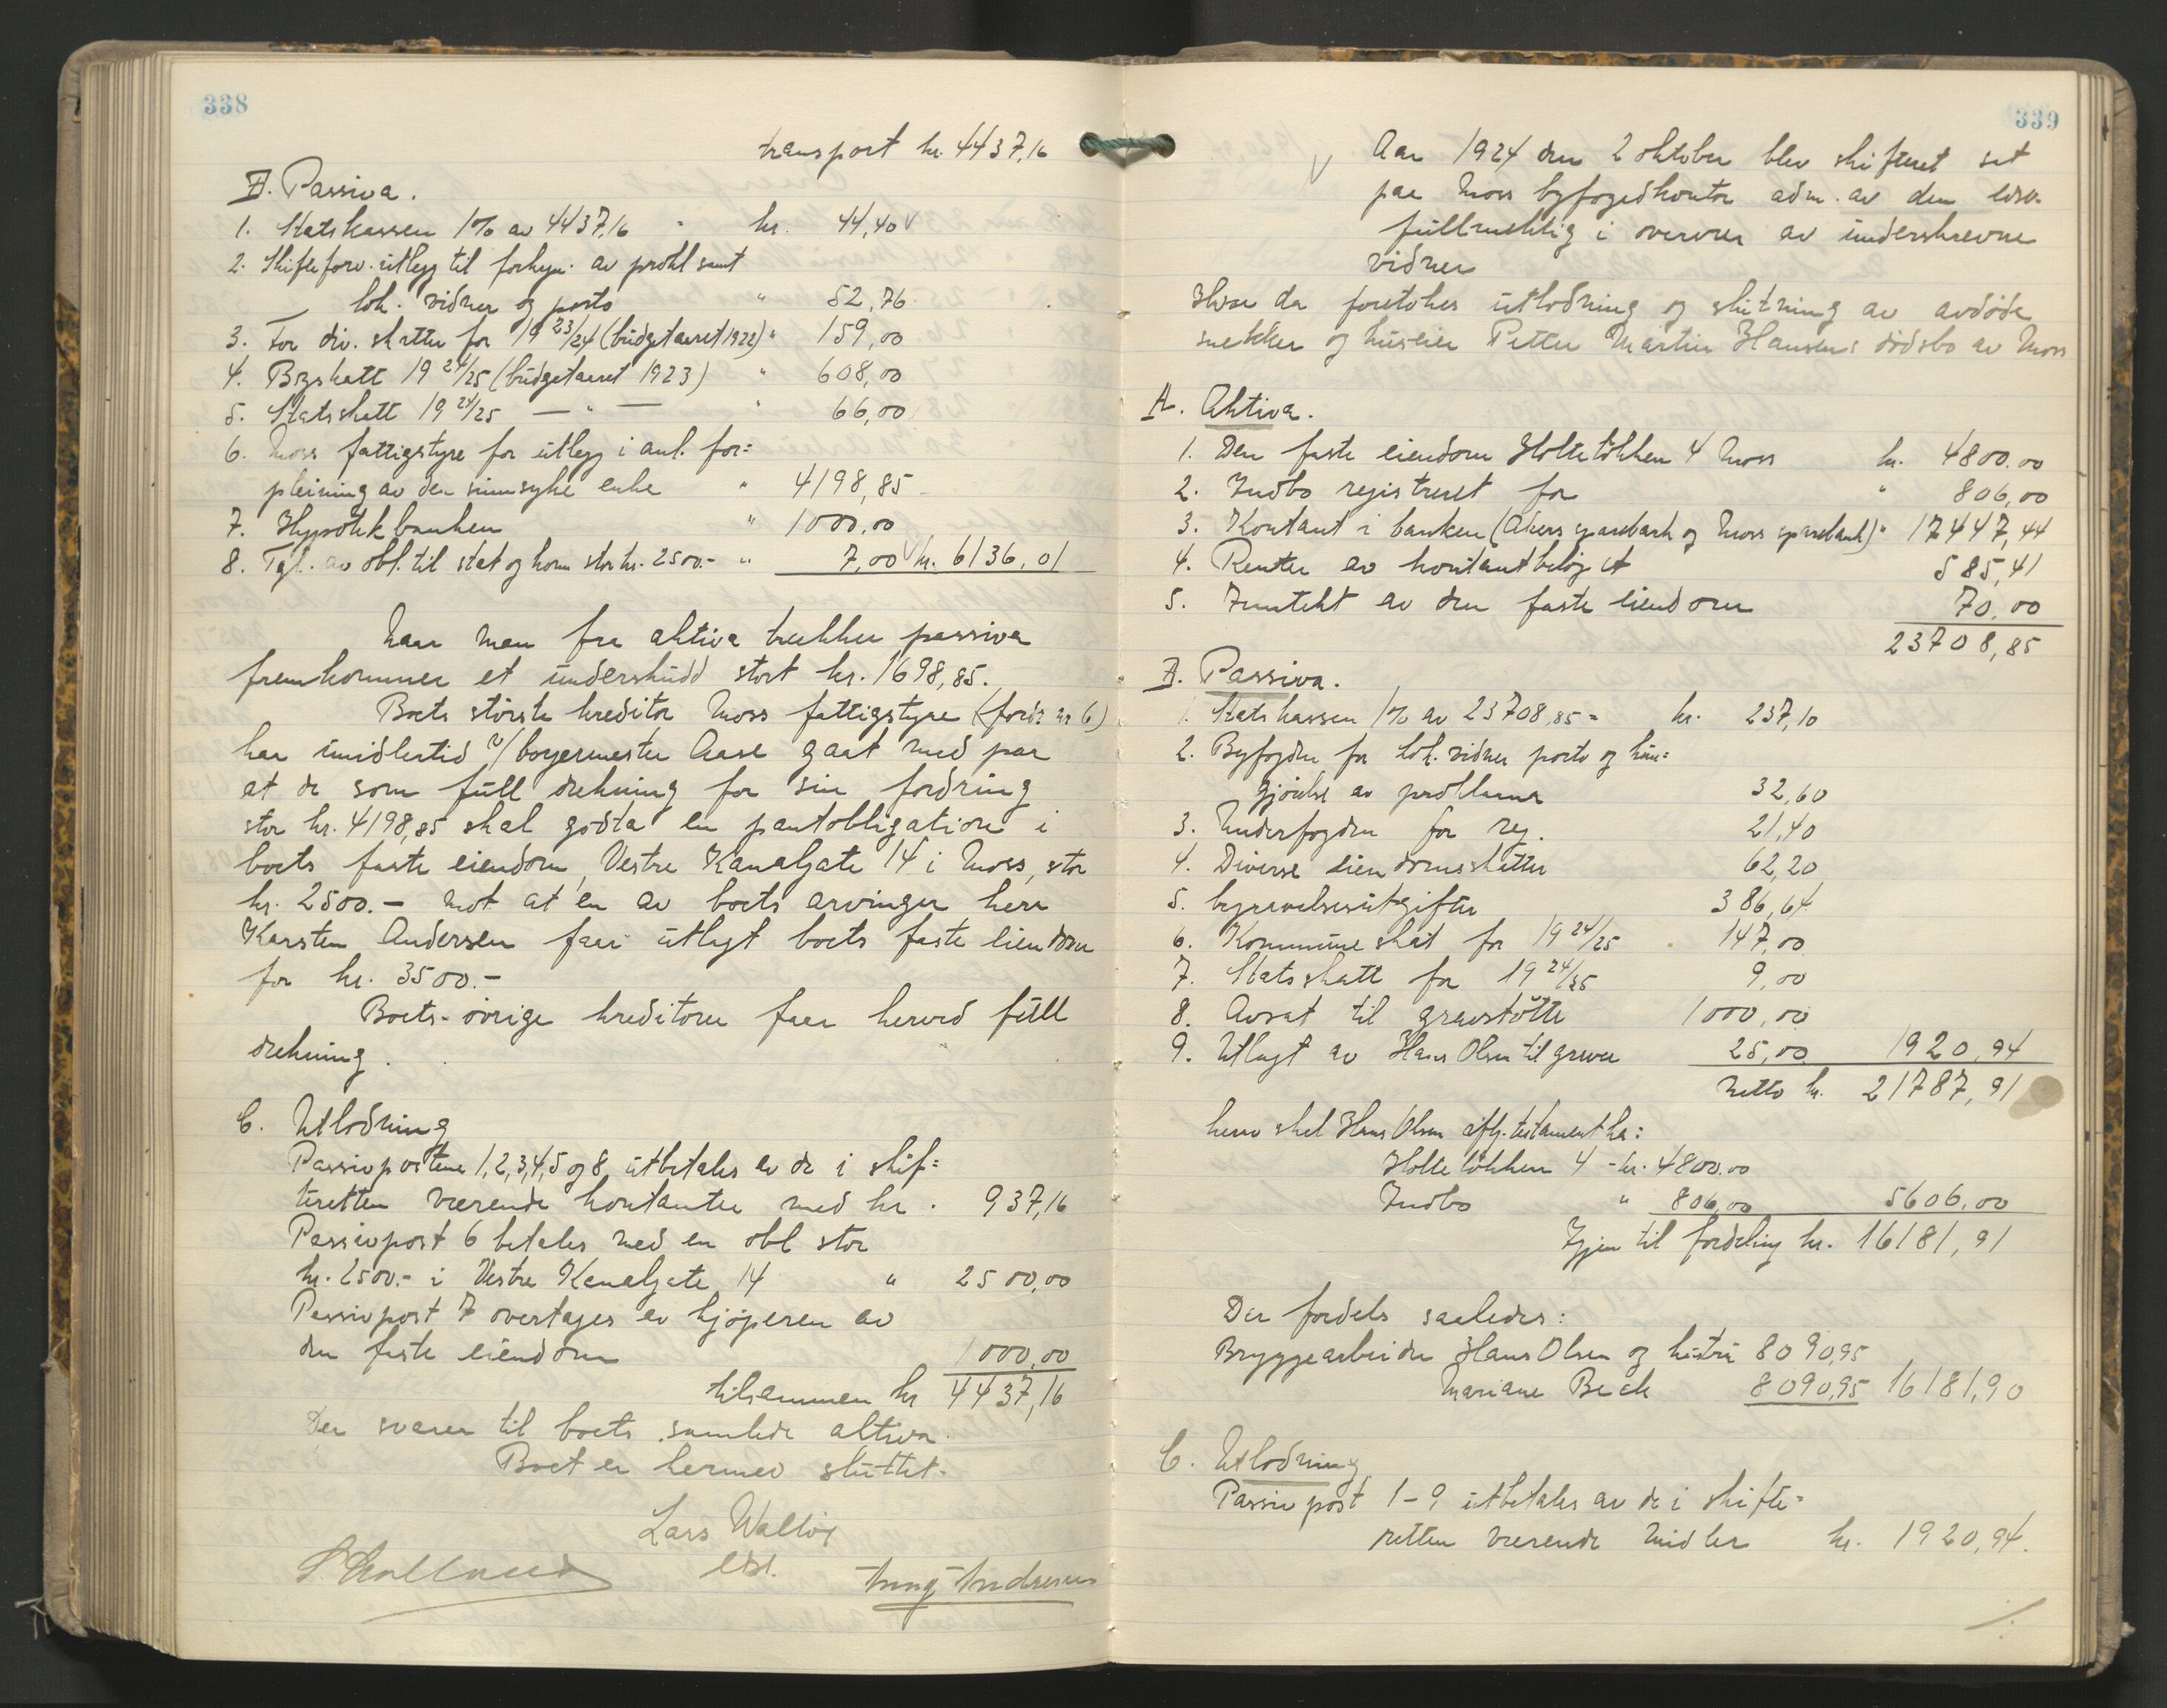 338
transport kr. 4437,16
B. Passiva.
1. Statskassen 1% av 4437,16 " kr. 44,40
2. Skifteforv. utlegg til forkyn. av prokl samt
lok. vidner og porto " 52,76
3. For div. skatter for 19 23/24 (budgetaaret 1922) " 159,00
4. Byskatt 19 24/25 (budgetaaret 1923) " 608,00
5. Statsskatt 19 24/25 — " — " 66,00
6. Moss fattigstyre for utlegg i anl. for=
pleining av den sinnsyke enke " 4198,85
7. Hypotekbanken " 1000,00
8. Tgl. av obl. til stat og kom stor kr. 2500.- " 7,00 kr. 6136,01
Naar man fra aktiva trekker passiva
fremkommer et underskudd stort kr. 1698,85.
Boets störste kreditor Moss fattigstyre (fordr nr 6)
har imidlertid v/ borgermester Aase gaat med paa
at de som full dekning for sin fordring
stor kr. 4198,85 skal godta en pantobligation i
boets faste eiendom, Vestre Kanalgate 14 i Moss, stor
kr. 2500.- mot at en av boets arvinger herr
Karsten Andersen faar utlagt boets faste eiendom
for kr. 3500.-
Boets övrige kreditorer faar herved full
dekning.
C. Utlodning
Passivpostene 1,2,3,4,5 og 8 utbetales av de i skif=
teretten værende kontanter med kr. 937,16
Passivpost 6 betales med en obl stor
kr. 2500.- i Vestre Kanalgate 14 " 2500,00
Passivpost 7 overtages av kjøperen av
den faste eiendom 1000,00
tilsammen kr 4437,16
Der svarer til boets samlede aktiva.
Boet er hermed sluttet.
Lars
edsv.
339
Aar 1924 den 2 oktober blev skifteret sat
paa Moss byfogedkontor adm. av den edsv.
fullmektig i overvær av underskrevne
vidner
Hvor da foretokes utlodning og slutning av avdöde
snekker og huseier Petter Martin Hansens dödsbo av Moss
A. Aktiva.
1. Den faste eiendom Holteløkken 4 Moss kr. 4800.00
2. Indbo registreret for " 806,00
3. Kontant i banken (Akers sparebank og Moss sparebank) " 17447,44
4. Renter av kontantbeløpet 585,41
5. Inntekt av den faste eiendom 70,00
23708,85
B. Passiva.
1. Statskassen 1% av 23708,85 = kr. 237,10
2. Byfogden for lok. vidner porto og kun=
gjörelse av proklama 32,60
3. Underfogden for reg. 21,40
4. Diverse eiendomsskatter 62,20
5. begravelsesutgifter 386,64
6. Kommuneskat for 19 24/25 147,00
7. Statsskatt for 19 24/25 9,00
8. Avsat til gravstötte 1000,00
9. Utlagt av Hans Olsen til graven 25,00 1920,94
netto kr. 21787,91
herav skal Hans Olsen iflg. testament ha:
Holteløkken 4 - kr. 4800.00
Indbo " 806,00 5606,00
Igjen til fordeling kr. 16181,91
Der fordeles saaledes:
Bryggearbeider Hans Olsen og hustru 8090,95
Mariane Beck 8090,95 16181,90
C. Utlodning
Passivpost 1-9 utbetales av de i skifte=
retten værende midler kr. 1920,94.